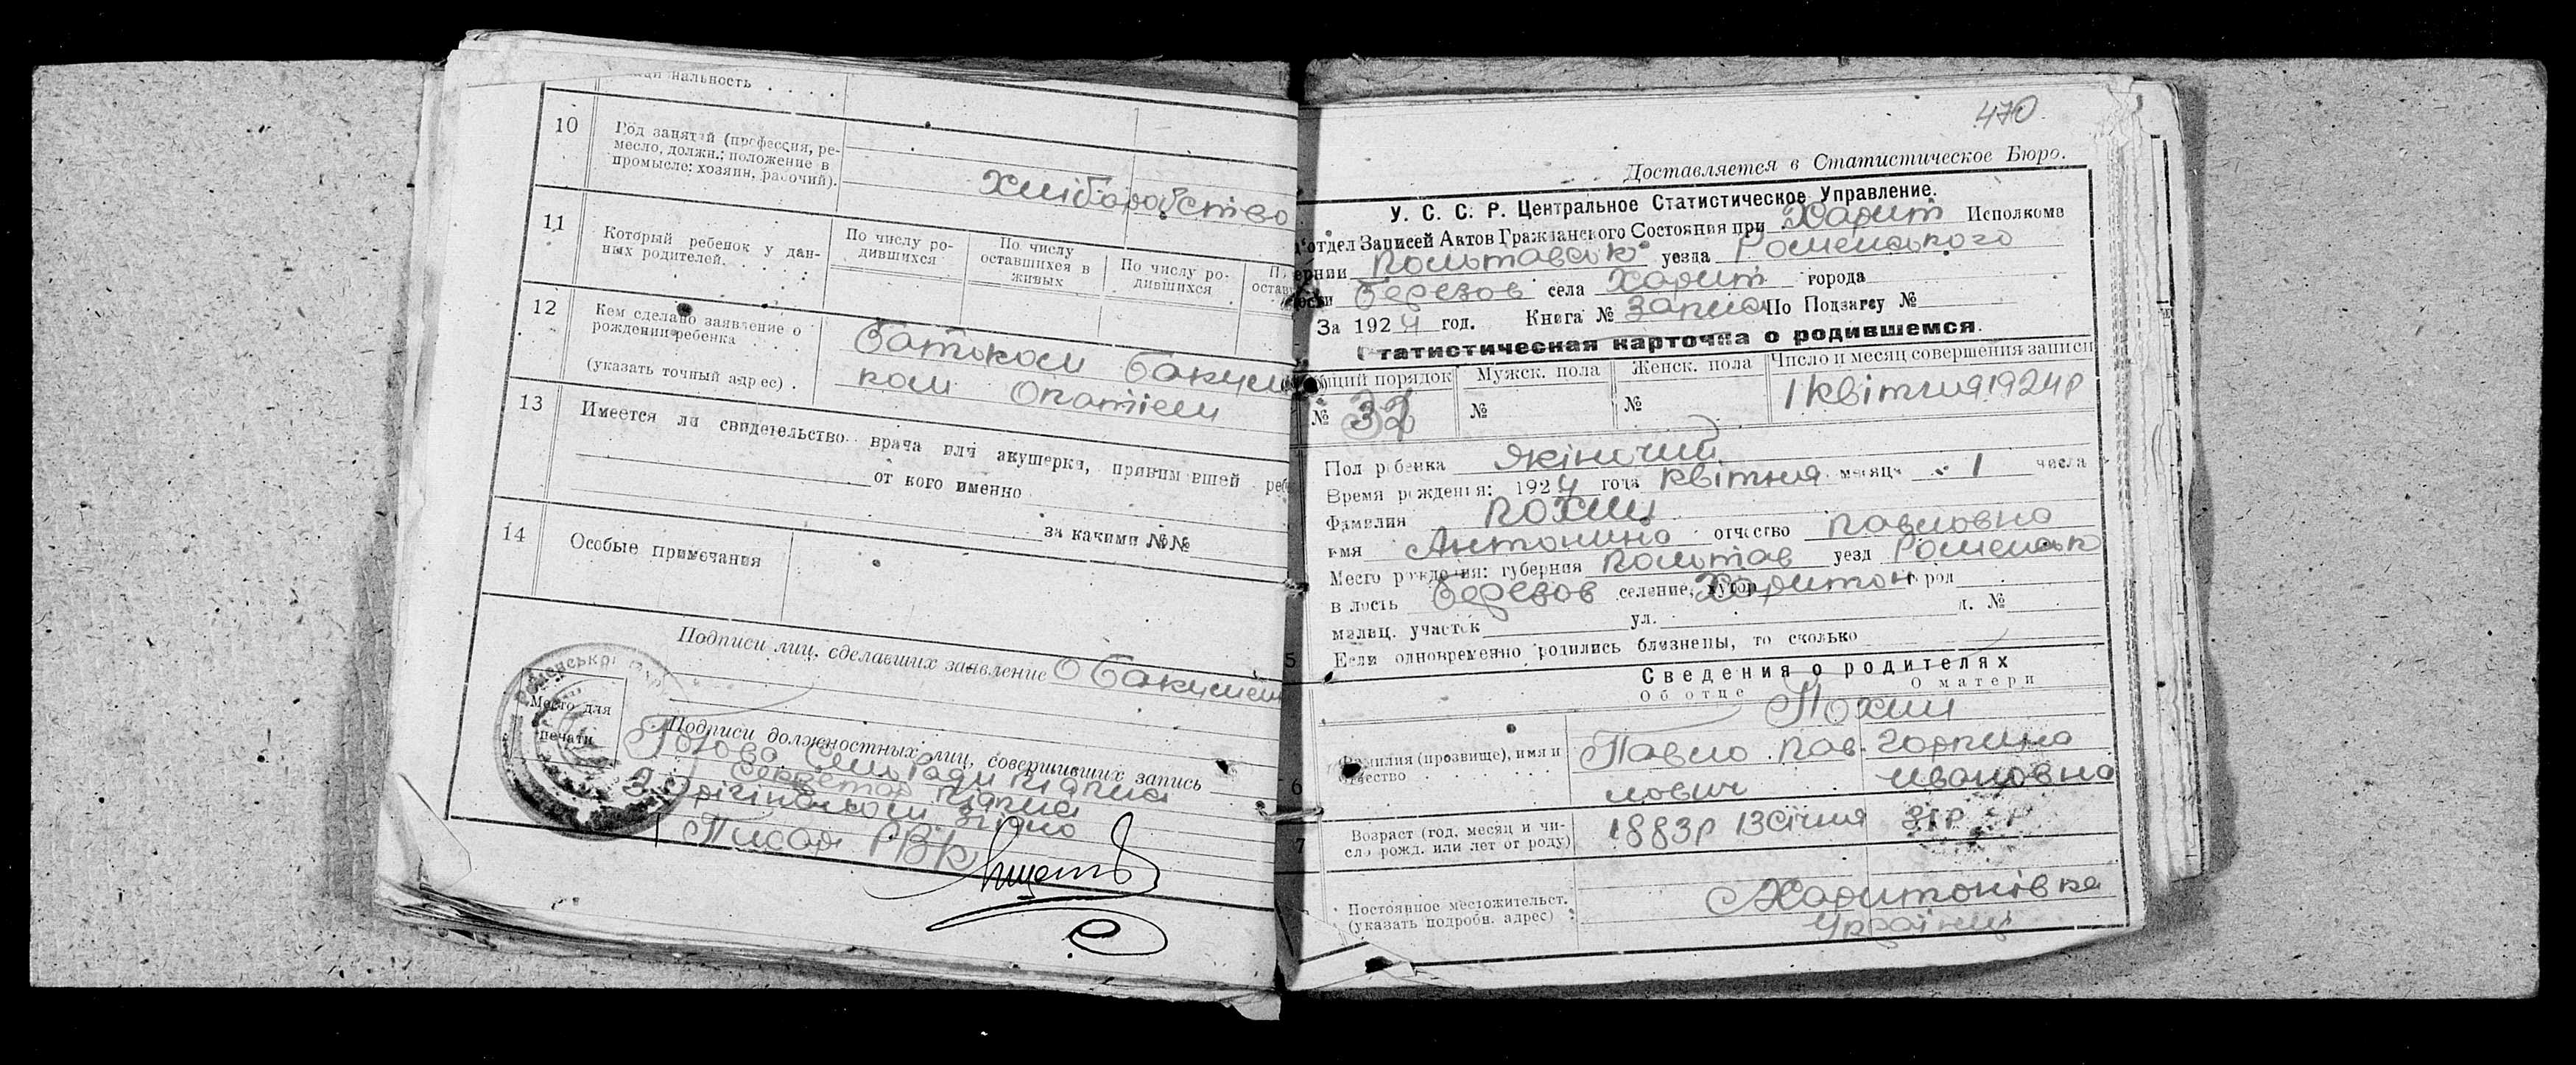 нальность . . . .
10
Род занятий (профессия, ре-
месло, должн.; положение в
промысле: хозяин, рабочий).
Хліборобство
11
Который ребенок у дан-
ных родителей. . . . . :
По числу ро-
дившихся
По числу
оставшихся в
живых
По числу ро-
дившихся
12
Кем сделано заявление о
рождении ребенка . . .
(указать точный адрес) .
Батьком
ком
13
Имеется ли свидетельство врача или акушерки, принимавшей
от кого именно
за какими №№
14
Особые примечания
Подписи лиц, сделавших заявление О
Место для
печати
Подписи должностных лиц, совершивших запись
Голова Сільради підпис
Секретар підпис
З орігіналом згідно
Писар РВК
470
Доставляется в Статистическое Бюро.
У. С. С. Р. Центральное Статистическое Управление.
отдел Записей Актов Гражданского Состояния при Харит Исполкоме
Польтавськ уезда Роменського
Березов села Харит города
За 1924 год. Книга № запис По Подзагсу №
Статистическая карточка о родившемся.
порядок
№ 32
Мужск. пола
№
Женск. пола
№
Число и месяц совершения записи
1 квітня 1924 р
Пол ребенка жіночий
Время рождения: 1924 года квітня месяца 1 числа
Фамилия Похил
имя Антонина отчество Павловна
Место рождения: губерния Польтав уезд Роменськ
волость Березов селение, хутор Харитон город
милиц. участок ул. д. №
5
Если одновременно родились близнецы, то сколько
Сведения о родителях
Об отце
О матери
Похил
6
Фамилия (прозвище), имя и
отчество . . . . . . . . .
Павло Пав-
лович
Горпина
Ивановна
7
Возраст (год, месяц и чи-
сло рожд. или лет от роду)
1883р 13 Січня
31 р
Постоянное местожительст.
(указать подробн. адрес) :
Харитонівка
Українці